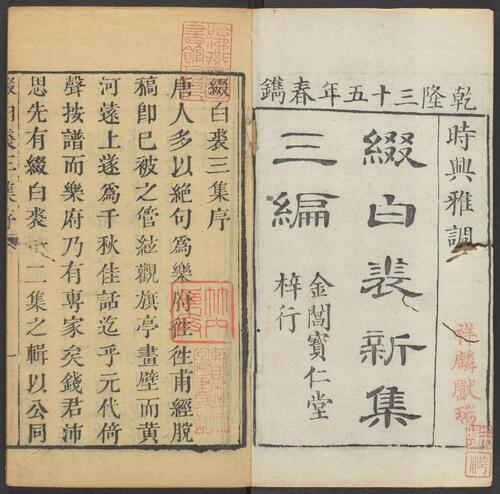 乾隆三十五年春鐫
時興雅調
綴白裘新集
三編
金閶寶仁堂
梓行
祥麟獻瑞
綴白裘三集序
唐人多以絕句爲樂府徃徃甫經脫
稿卽已被之管絃觀旗亭畫壁而黄
河遠上遂爲千秋佳話迄乎元代倚
聲按譜而樂府乃有專家矣錢君沛
思先有綴白裘一二集之輯以公同
綴白裘三集序
一